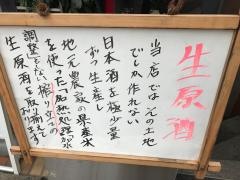 生原酒
当店では元の土地
でしか作れない
日本酒を極少量
ずつ生産し
地元農家の県産米
を使った「加熱処理加水
調整をしない搾り立て
生原酒を取り揃えます